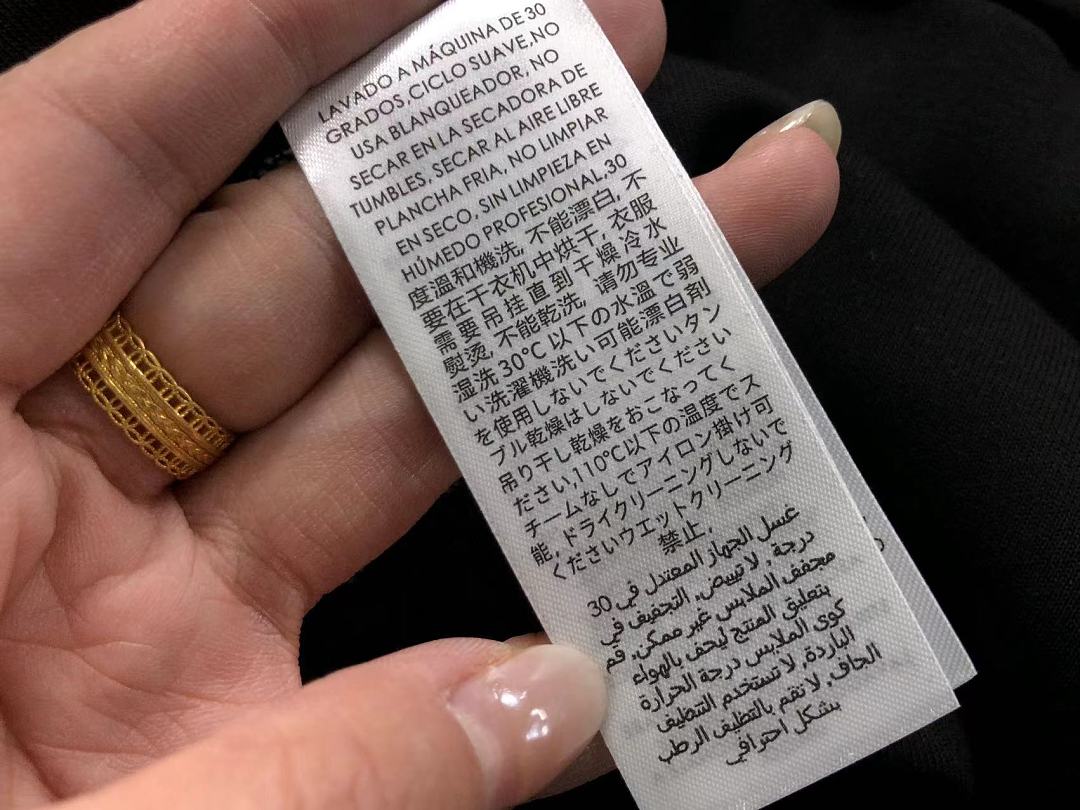 LAVADO A MÁQUINA DE 30
GRADOS,CICLO SUAVE,NO
USA BLANQUEADOR, NO
SECAR EN LA SECADORA DE
TUMBLES, SECAR AL AIRE LIBRE
PLANCHA FRIA, NO LIMPIAR
EN SECO, SIN LIMPIEZA EN
HÚMEDO PROFESIONAL,30
度溫和機洗, 不能漂白, 不
要在干衣机中烘干, 衣服
需要吊挂直到干燥冷水
熨烫, 不能乾洗, 请勿专业
湿洗 30°C 以下の水温で弱
い洗濯機洗い可能漂白剤
を使用しないでくださいタン
ブル乾燥はしないでください
吊り干し乾燥をおこなってく
ださい,110°C以下の温度でス
チームなしでアイロン掛け可
能, ドライクリーニングしないで
くださいウエットクリーニング
禁止,
غسل الجهاز المعتدل في 30
درجة, لا تبييض, التجفيف في
مجفف الملابس غير ممكن, قم
بتعليق المنتج ليجف بالهواء
كوى الملابس درجة الحرارة
الباردة, لا تستخدم التنظيف
الجاف, لا تقم بالتظيف الرطب
بشكل احترافي